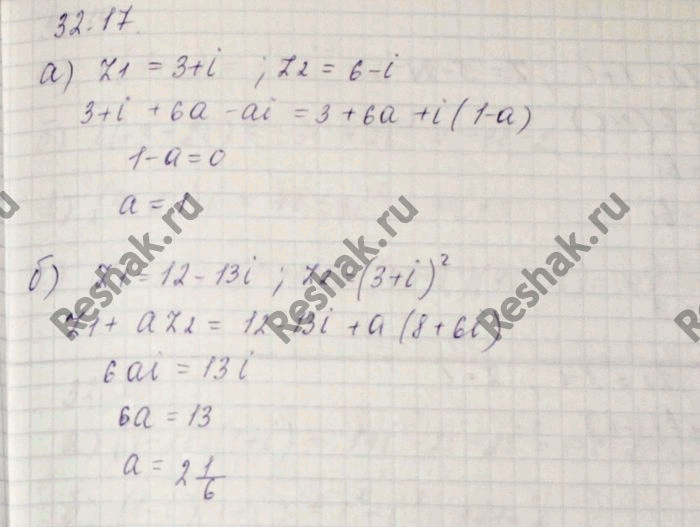 32.17.
а) z1 = 3+i ; z2 = 6-i
3+i +6a -ai = 3+6a+i(1-a)
1-a=0
a=1
б) z1 = 12-13i ; z2=(3+i)²
z1+ a z2 = 12-13i +a(8+6i)
6ai = 13i
6a = 13
a = 2 1/6
Reshak.ru
Reshak.ru
Reshak.ru
Reshak.ru
Reshak.ru